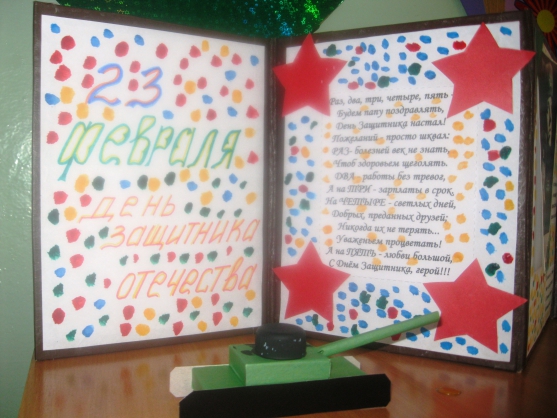 23
февраля
день
защитника
отечества
Раз, два, три, четыре, пять -
Будем папу поздравлять,
День Защитника настал!
Пожеланий - просто шквал:
РАЗ- болезней век не знать,
Чтоб здоровьем щеголять.
ДВА - работы без тревог,
А на ТРИ - зарплаты в срок,
На ЧЕТЫРЕ - светлых дней,
Добрых, преданных друзей;
Никогда их не терять...
Уваженьем процветать!
А на ПЯТЬ - любви большой,
С Днём Защитника, герой!!!